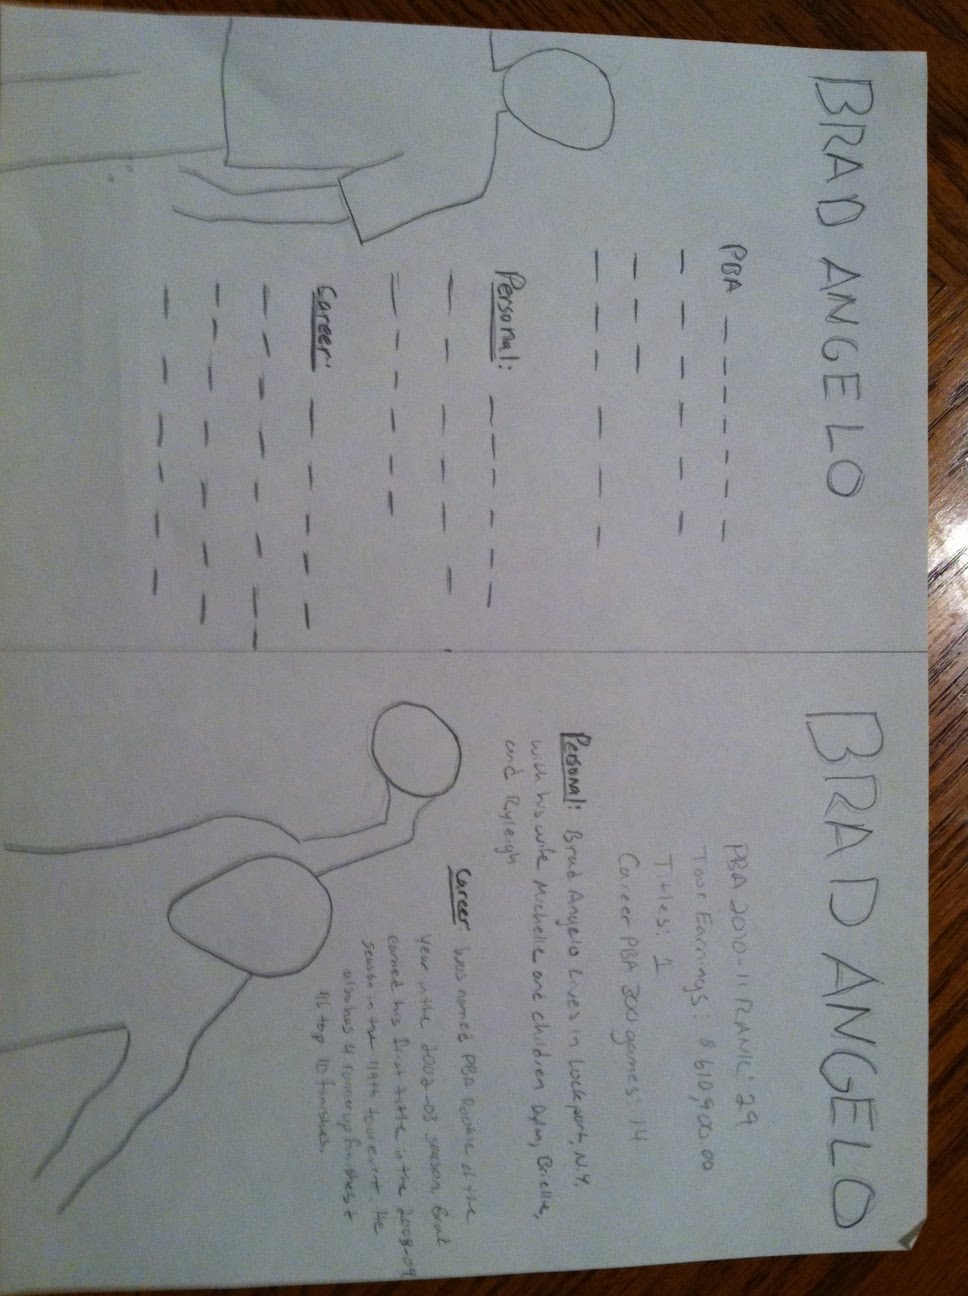 BRAD ANGELO
PBA
Personal:
Career:
BRAD ANGELO
PBA 2010-11 RANK: 29
Tour Earnings: $610,900.00
Titles: 1
Career PBA 300 games: 14
Personal: Brad Angelo lives in Lockport, N.Y.
with his wife Michelle and children Dylan, Brielle,
and Ryleigh
Career: was named PBA Rookie of the
year in the 2002-03 season. Brad
earned his first title in the 2008-09
season in the 119th tour event. He
also has 4 runner up finishes +
46 top 10 finishes